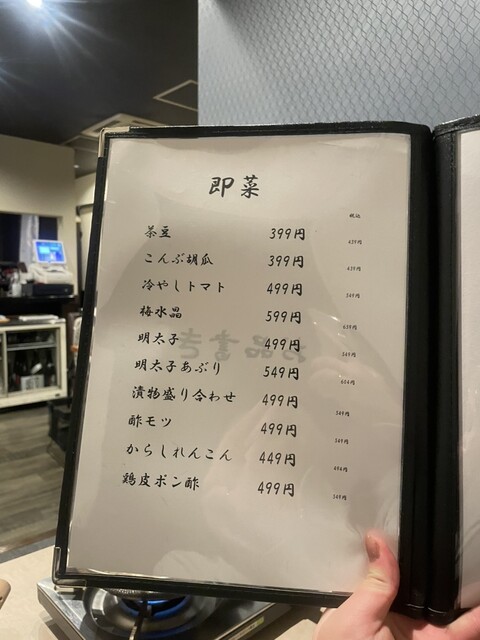 即菜
税込
茶豆 399円 439円
こんぶ胡瓜 399円 439円
冷やしトマト 499円 549円
梅水晶 599円 659円
明太子 499円 549円
明太子あぶり 549円 604円
漬物盛り合わせ 499円 549円
酢モツ 499円 549円
からしれんこん 449円 494円
鶏皮ポン酢 499円 549円